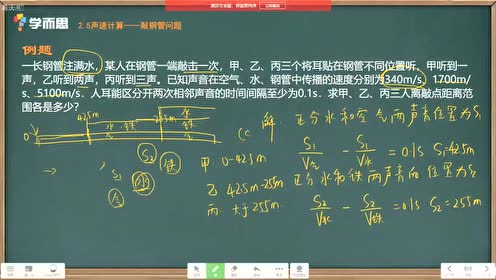 学而思
2.5声速计算——敲钢管问题
例题
一长钢管注满水，某人在钢管一端敲击一次，甲、乙、丙三个将耳贴在钢管不同位置听，甲听到一
声，乙听到两声，丙听到三声。已知声音在空气、水、钢管中传播的速度分别为340m/s、1700m/
s、5100m/s、人耳能区分开两次相邻声音的时间间隔至少为0.1s．求甲、乙、丙三人离敲点距离范
围各是多少？
42.5m
255m
水
铁
水.铁
0
解：区分水和空气两声音位置为S₁
S₁/V气 - S₁/V水 = 0.1s S₁=42.5m
甲：0-42.5m
乙 42.5m-255m
丙 大于255m
区分水和铁两声音的位置为S₂
S₂/V水 - S₂/V铁 = 0.1s S₂=255m
S₂
S₁
气
水
铁